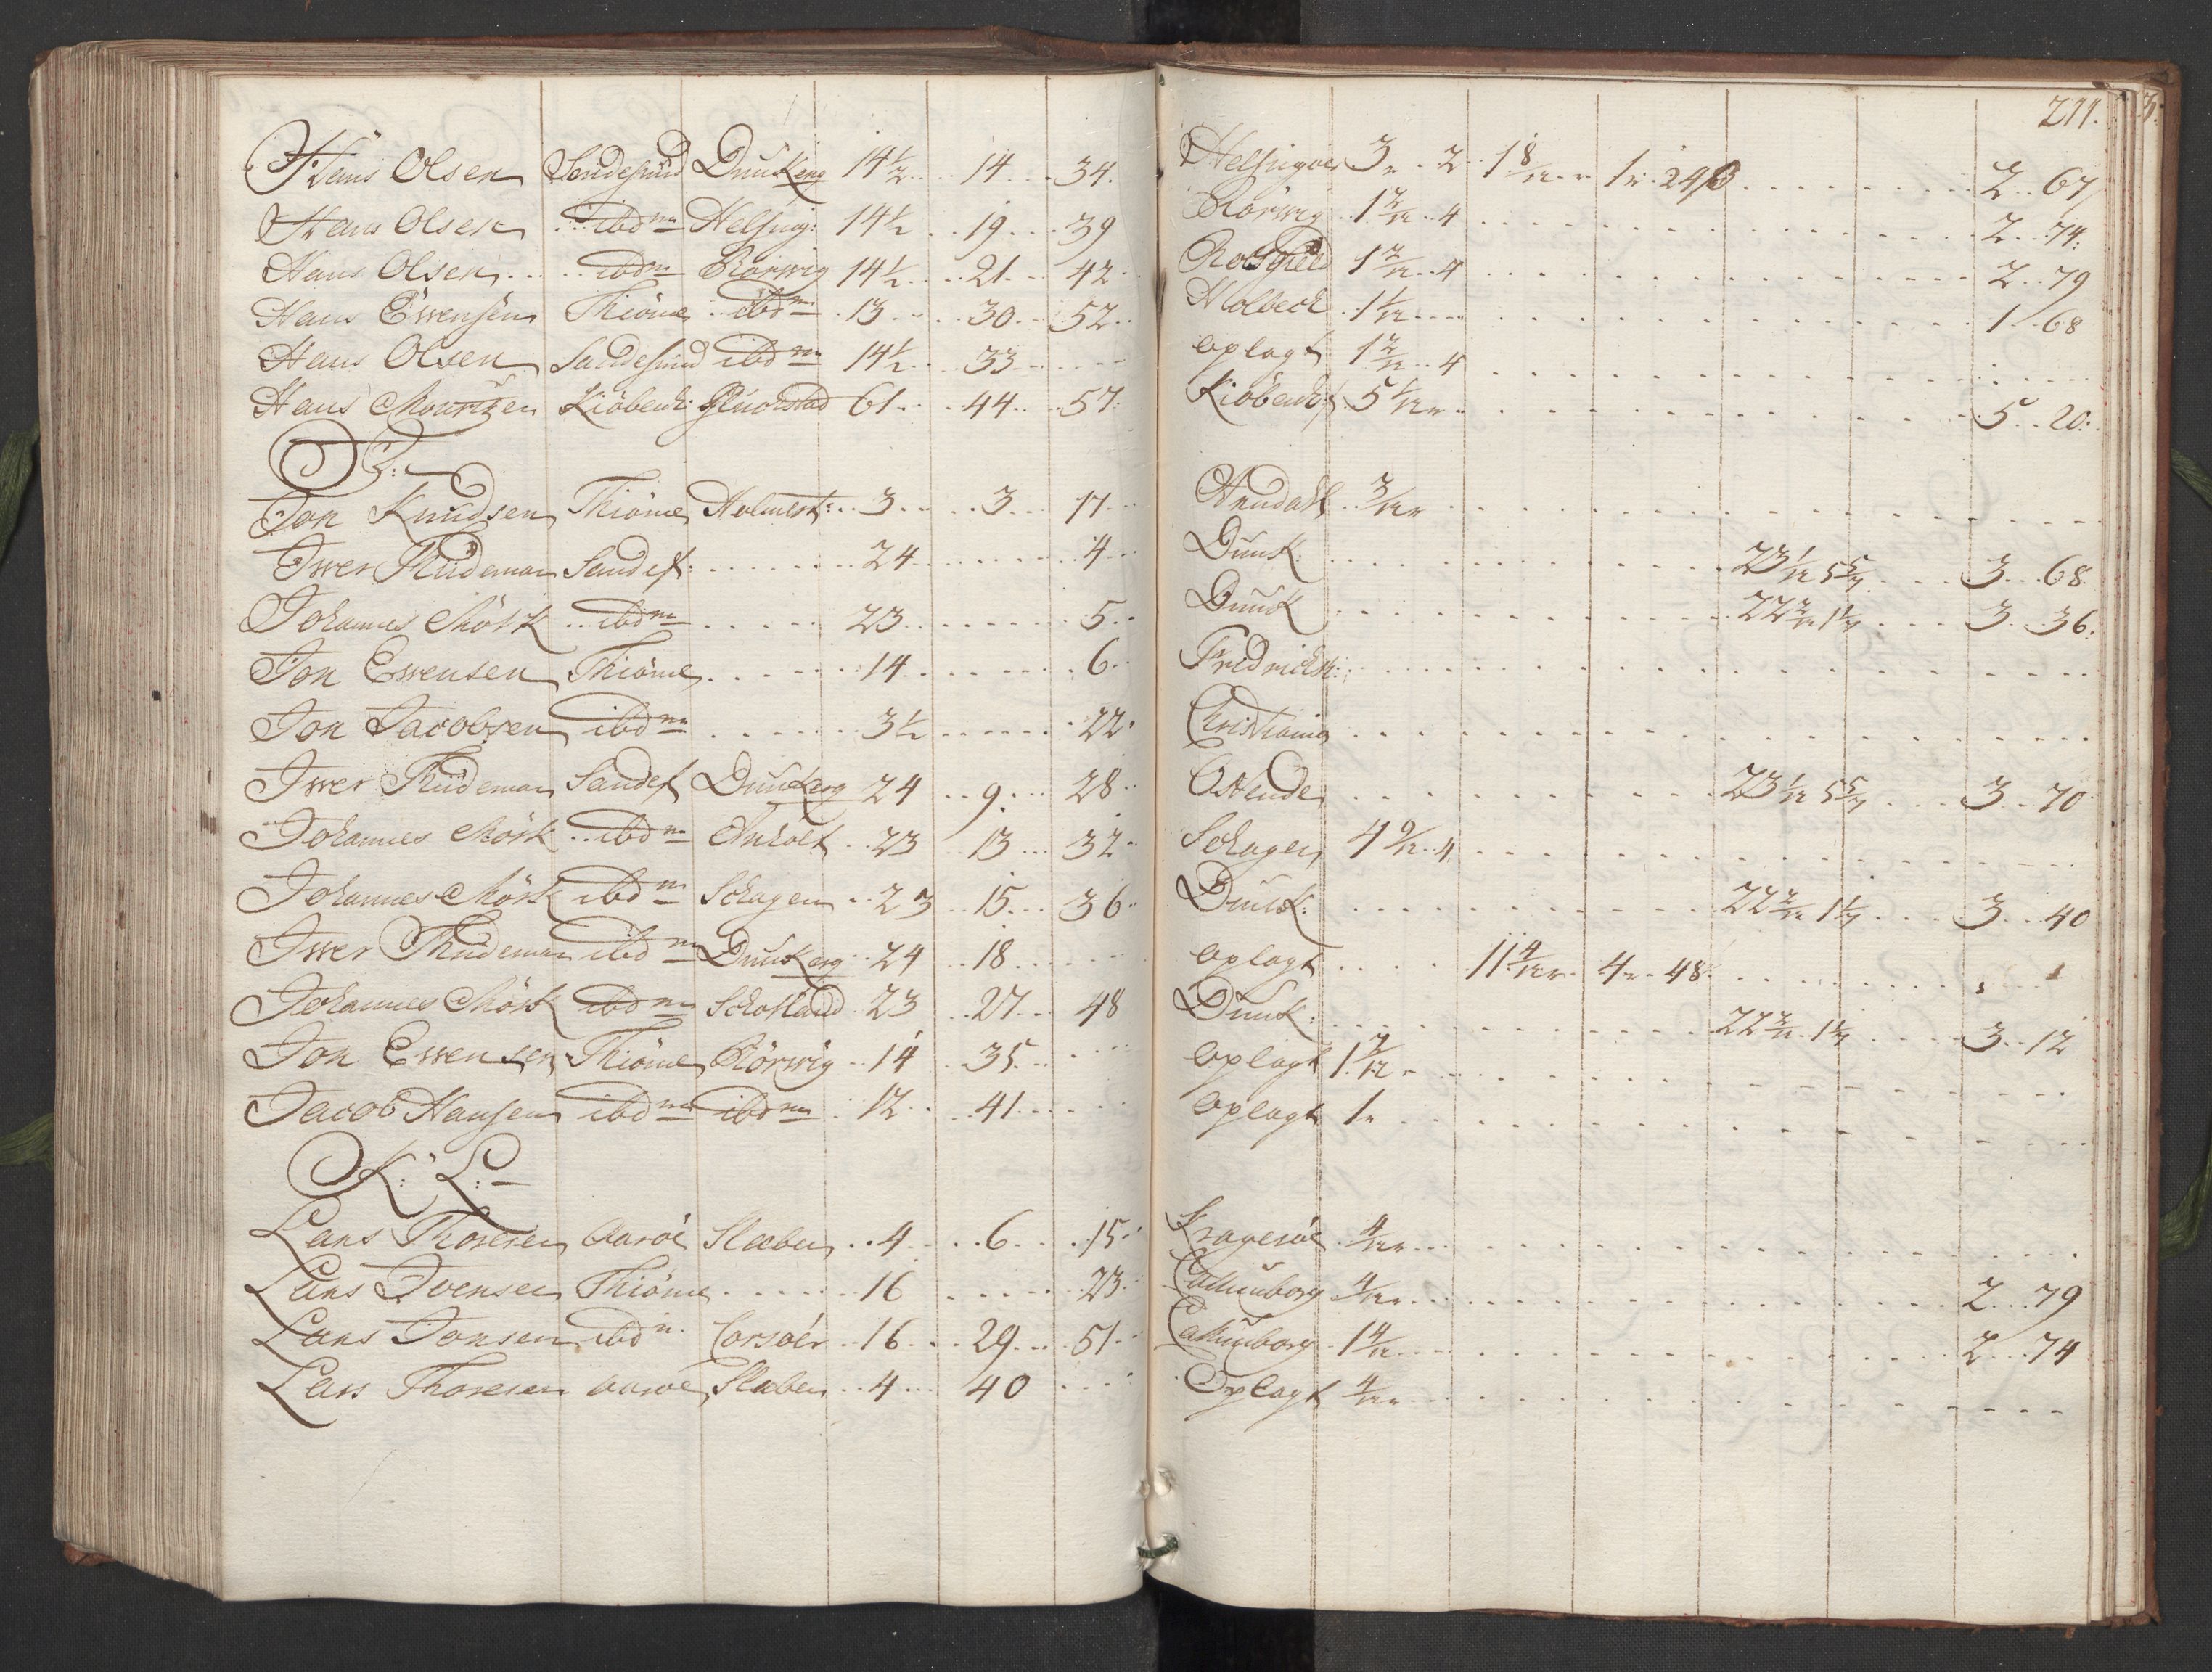 211.
H: Hans Olsen Sandesund Dunkerq 14½ 14 34. Helsingoer 3 2 1 8/12 1 24β 2 67
Hans Olsen ibdm Helsing: 14½ 19 39 Rörwig 1 2/12 4 2 74
Hans Olsen ibdm Rörwig 14½ 21 42 1 2/12 4 2 79
Hans Ewensen Thiöme ibdm 13 30 52 Holbeck 1 1/12 1 68
Hans Olsen Sandesund ibdm 14½ 33 oplagt 1 2/12 4
Hans Mourtzen Kiöbenh: Gluckstad 61 44 57 Kiöbenh 5 1/12 5 20
I:
Jon Knudsen Thiöme Holmest: 3 3 17 Arndahl 3/12
Iwer Thüdeman Sandef: 24 4 Dunk: 23 1/12 5 5/7 3 68
Johannes Mörk ibdm 23 5 Dunk 22 2/12 1 1/7 3 36
Jon Ewensen Thiöme 14 6 Fridrichst:
Jon Jacobsen ibdm 3½ 22 Christiania
Iwer Thüdeman Sandef Dunkerq 24 9 28 Ostende 23 1/12 5 5/7 3 70
Johannes Mörk ibdm Anholt 23 13 32 Schagen 4 9/12 4
Johannes Mörk ibdm Schagen 23 15 36 Dunk: 22 2/12 1 1/7 3 40
Iwer Thüdeman ibdm Dunkerq 24 18 oplagt 11 4/12 4 48
Johannes Mörk ibdm Schotland 23 27 48 Dunk: 22 2/12 1 1/7 3 12
Jon Ewensen Thiöme Rörwig 14 35 oplagt 1 2/12
Jacob Hansen ibdm ibdm 12 41 oplagt 1
K: L:
Lars Thoresen Aaröe Slaben 4 6 15 Krageröe 4/12
Lars Ivensen Thiöme 16 23 Callundborg 4/12 2 79
Lars Jonsen ibdm Corsöer 16 29 51 Callundborg 1 4/12 2 74
Lars Thoresen Aaröe Slaben 4 40 Oplagt 4/12